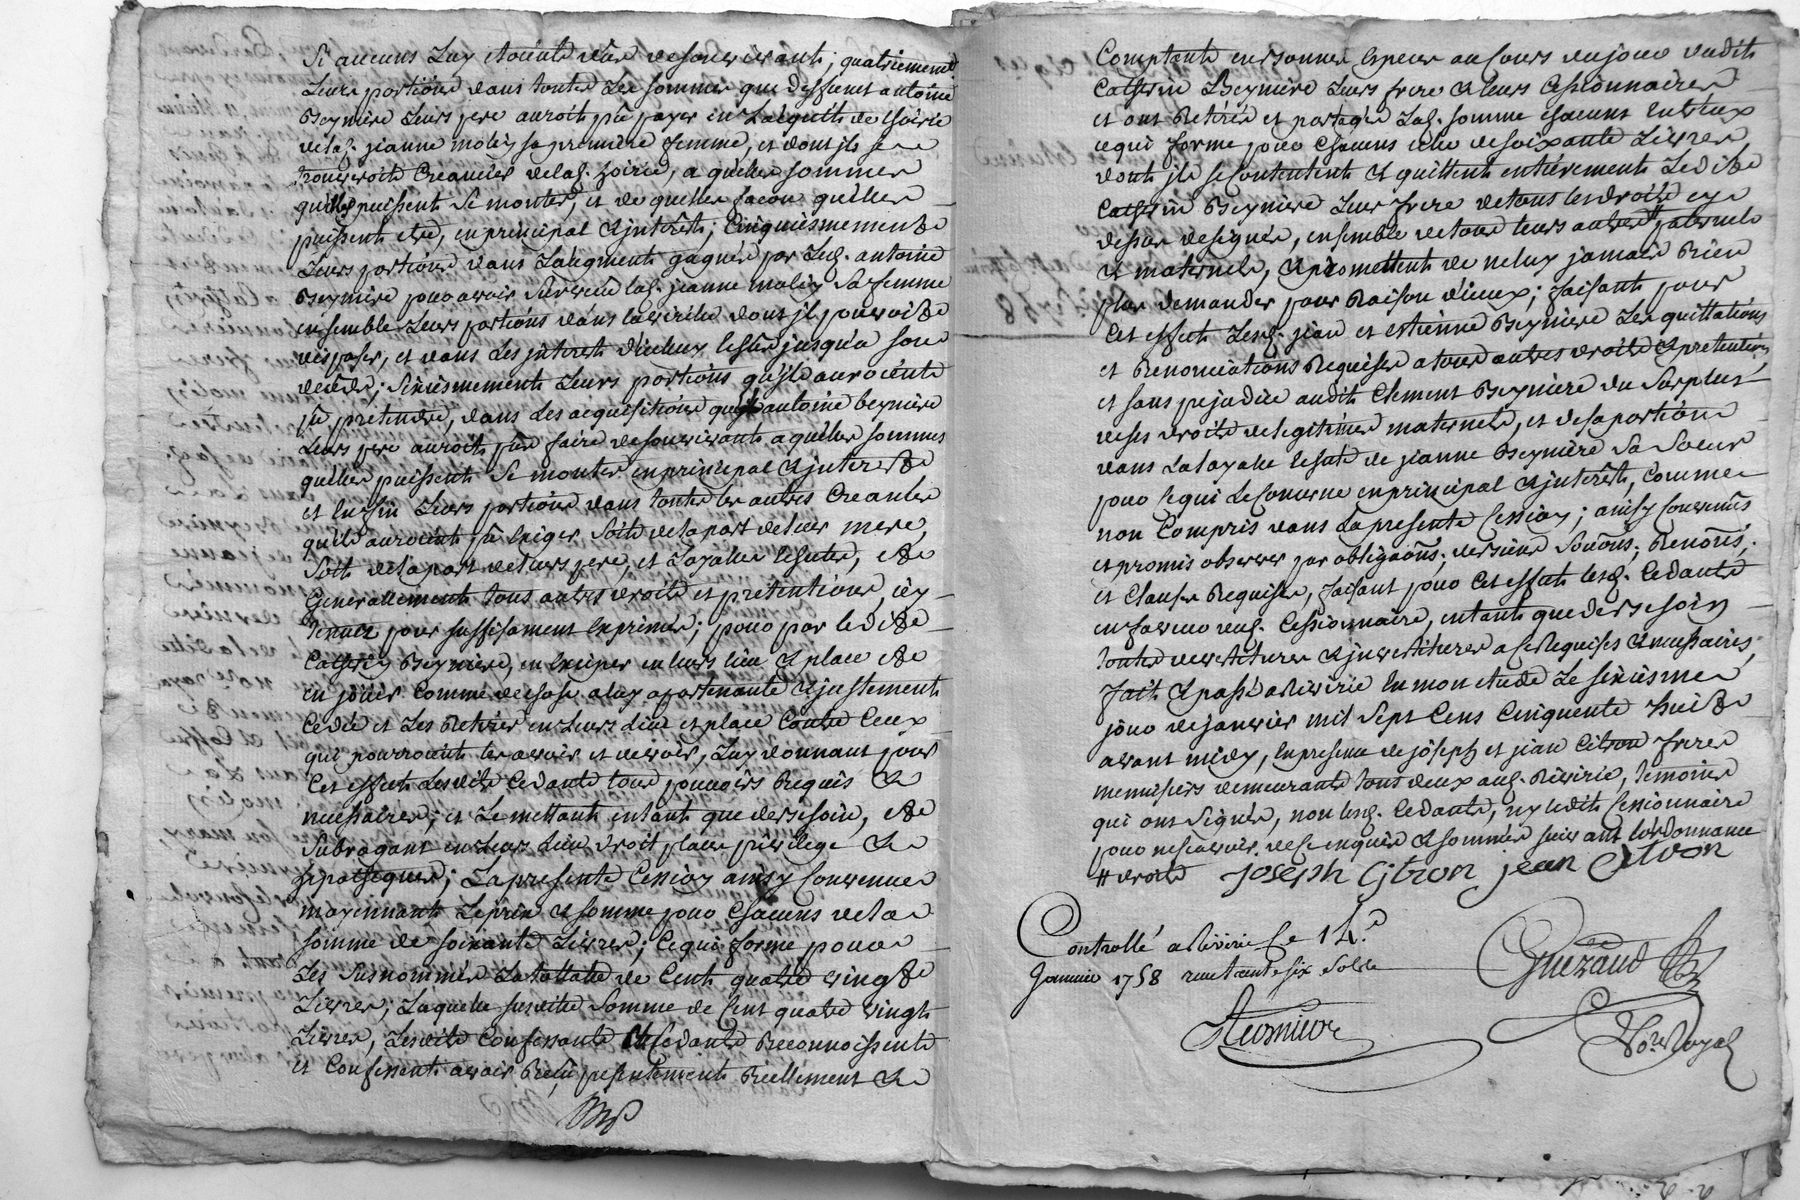 Si aucuns Luy etoient dûs de son vivant; quatriemement
Leurs portions dans toutes Les sommes que deffunt antoine
Beyniere Leurs pere auroit pû payer en L'acquit de hoirie
de lad. jeanne molin sa premiere femme, et dont ils se
trouveroit Creancier de lad. hoirie, a quelles sommes
qu'elles puissent Se monter, et de quelles façon qu'elles
puissent etre, en principal & jnterêts; Cinquiesmement
Leurs portions dans Laugment gagnés par Led. antoine
Beyniere pour avoir survecu lad. jeanne molin Sa femme
ensemble Leurs portions dans la virile dont jl pouvoit
disposer, et dans Les jnterets d'iceluy jusqu'a son
deceds; Sixiesmement Leurs portions qu'ils auroients
pû pretendre, dans Les acquisitions que antoine beyniere
Leurs pere auroit pû faire de son vivant a quelles sommes
quelles puissent Se monter en principal & jnterets
et Enfin Leurs portions dans toutes les autres Creances
qu'ils auroient pû Exiger Soit de la part de leur mere,
Soit de la part de leurs pere, et Layalle &
Generallement tous autres droits et pretentions, icy
tenues pour suffisament Exprimés; pour par ledit
Catherin Beyniere, en leurs lieu & place &
en jouir Comme de chose a luy apartenante & justement
Cedée et Les Retirer en Leurs Lieu et place Contre Ceux
qui pourroient les avoir et devoir, Luy donnant pour
Cet effect Lesdits Cedants tous pouvoirs Requis &
necessaires; et Le mettant en tant que de besoin, &
Subrogant en Leurs Lieu droit place privilege &
hipotheques; La presente Cession ainsy Convenue
moyennant Le prix & somme pour Chacuns de la
somme de soixante Livres; Ce qui forme pour
Les Susnommés La tottalle de Cent quatre vingt
Livres; Laquelle susdite Somme de Cent quatre vingt
Livres, Lesdits Confessants & Cédants Reconnoissent
et Confessent avoir Reçu presentement Reellement &
Comptant en sonnes Especes au Cours du jour dudit
Catherin Beyniere Leurs frere & leurs Cessionnaires
et ont Retirés et partagés Lad. somme Chacuns Entreux
ce qui forme pour Chacuns celle de soixante Livres
dont jls se Contentent & quittent entierement Ledit
Catherin Beyniere Leur frere de tous les droits cy
dessus designés, ensemble de tous leurs autres # paternels
& maternels, & promettent de ne luy jamais Rien
plus demander pour Raison d'iceux; faisant pour
Cet effect Lesd. jean et estienne Beyniere Les quittations
et Renonciations Requises a tous autres droits & pretentions,
et sans prejudice audit Clement Beyniere du Surplus
de ses droits de legitimes maternels, et de sa portion
dans La layalle de jeanne Beyniere Sa Soeur
pour Ce qui Le Concerne en principal & jnterêts, Comme
non Compris dans La presente Cession; ainsy Convenus
et promis observer par obligaõns; Renons;
et Clauses Requises, faisant pour Cet effect lesd. Cedants
en faveur dud. Cessionnaire, en tant que de besoin
toutes devestitures & jnvestitures a ce Requises & necessaires,
fait & passé a Reviré En mon etude Le sixiesme
jour de janvier mil Sept Cens Cinquante huit
avant midy, En presence de joseph et jean Citron freres
menuisiers demeurants tous deux aud. Reviré, temoins
qui ont Signés, non lesd. Cedants, ny ledit Cessionnaire
pour ne sçavoir de ce enquis & sommés suivant L'ordonnance
# droits joseph Citron jean Citron
Controllé a Reviré Le 14.e
Janvier 1758 Reçu trente six Sols
Guezaud
No.re Royal